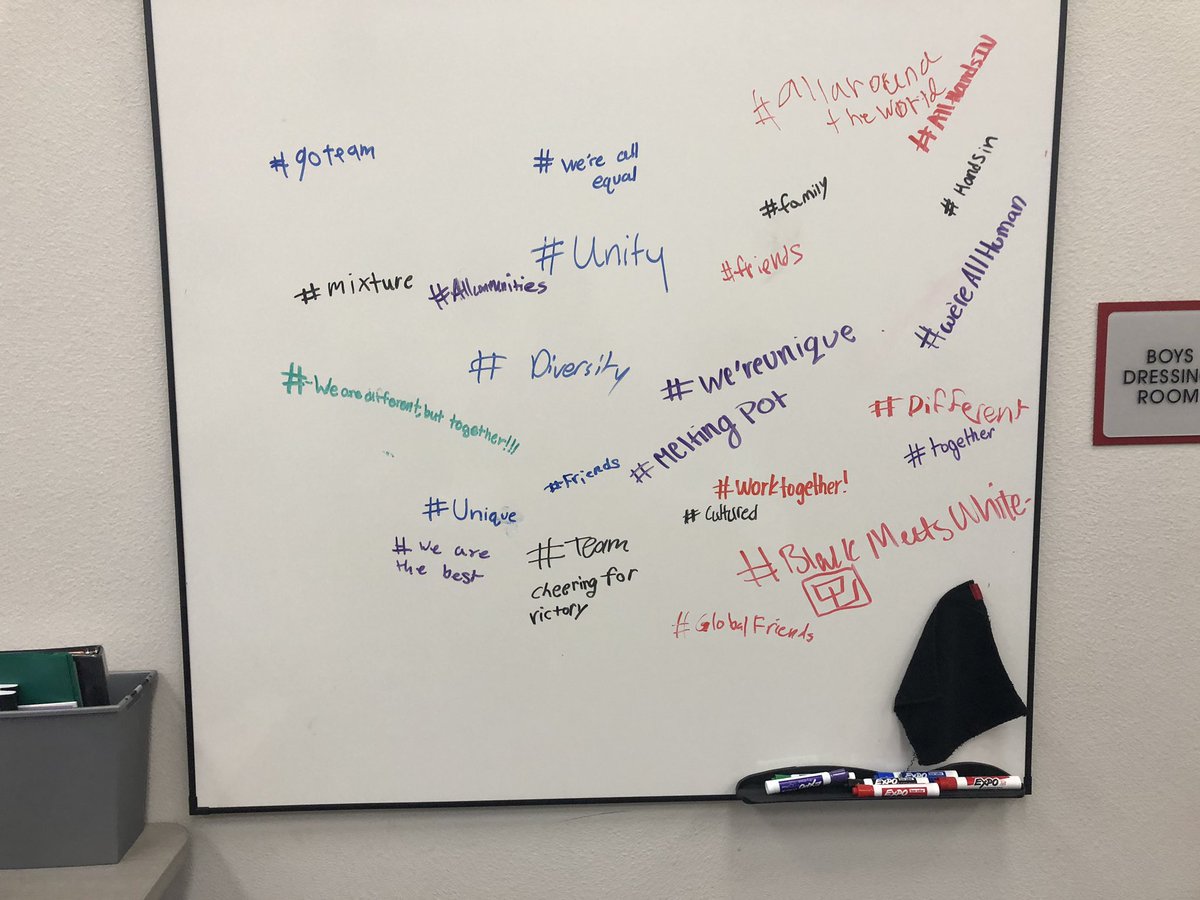 #allaround
the world
#AllHandsIN
#goteam
#we're all
equal
#Handsin
#family
#Unity
#friends
#we'reAllHuman
#mixture
#Allcommunities
#Diversity
#we'reunique
#-We are different, but together!!!
#Melting Pot
#Different
#together
#Friends
#Worktogether!
#Unique
#Cultured
#we are
the best
#Team
cheering for
victory
#Black Meets White-
#GlobalFriends
BOYS
DRESSING
ROOM
EXPO
EXPO
EXPO
EXPO